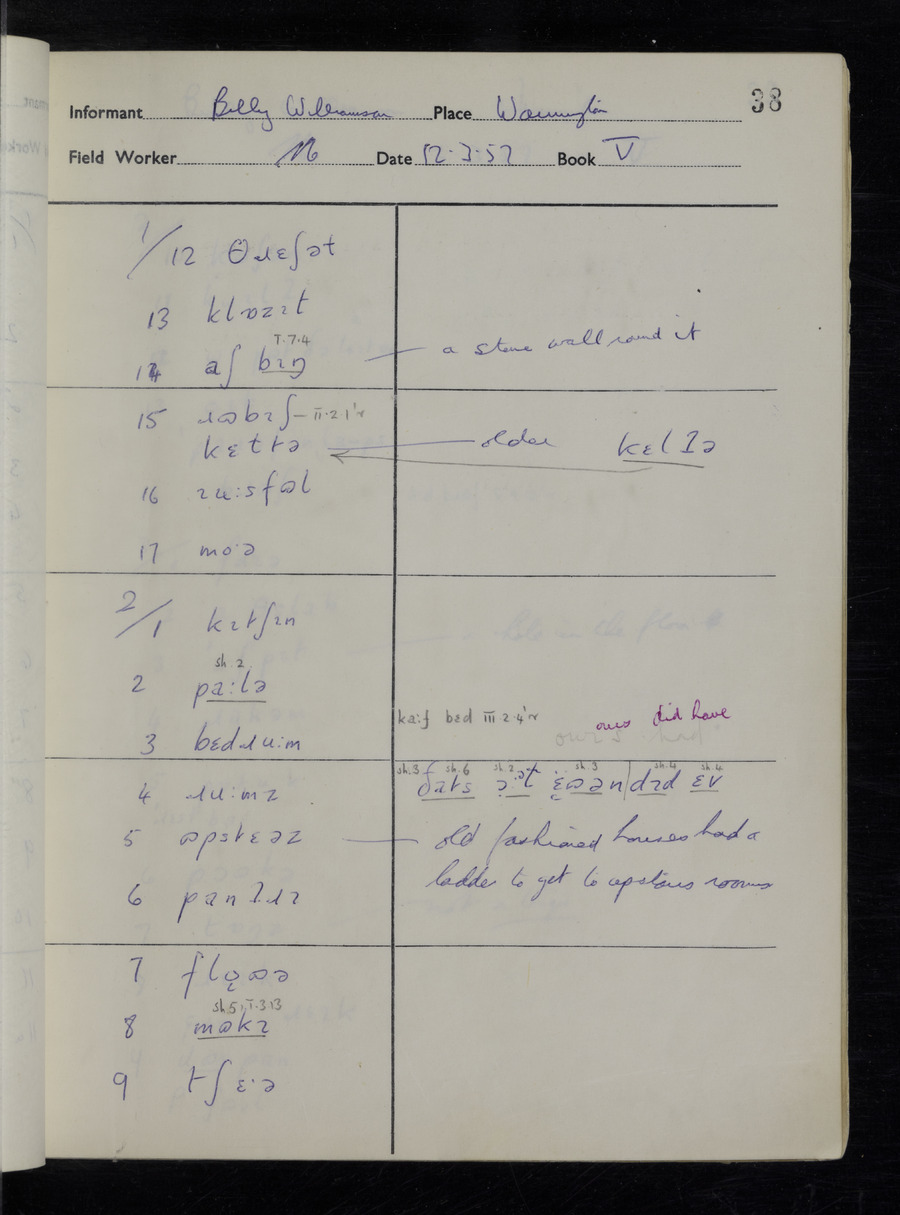 38
Informant Billy Williamson Place
Field Worker Date 12.3.57 Book V
1/12 θɹɛʃət
13 klɒzɪt
T.7.4
14 aʃ bɪŋ — a stone wall round it
15 ɹʊbɪʃ — II.2.1'r
kɛttə — older kɛlɪə
16 ɪu:sfʊl
17 mo·ə
2/1 kɪtʃɪn
sh.2.
2 pa:lə
ka:f bɛd III.2.4'r ours did have
3 bɛdɹu:m
sh.3 sh.6 sh.2 sh.3 sh.4 sh.4
ðɪts ət ɛʊən dɪd ɛv
4 ɹu:mz
5 ʊpstɛəz — old fashioned houses had a
ladder to get to upstairs rooms
6 panɪɹɪ
7 flo̜ʊə
sh.5, I.3.13
8 mʊkɪ
9 tʃɛ·ə